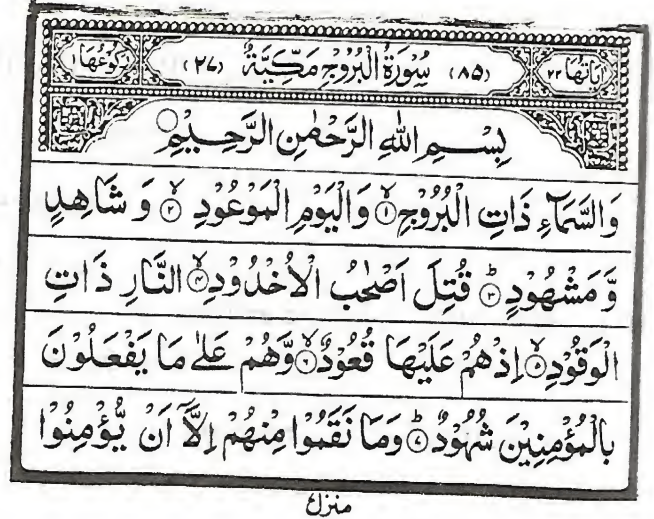 اٰيَاتُهَا ٢٢ (٨٥) سُوْرَةُ الْبُرُوْجِ مَكِّيَّةٌ (٢٧) رُكُوْعُهَا ١
بِسْمِ اللّٰهِ الرَّحْمٰنِ الرَّحِيْمِ ○
وَالسَّمَآءِ ذَاتِ الْبُرُوْجِ ۙ﴿۱﴾ وَالْيَوْمِ الْمَوْعُوْدِ ۙ﴿۲﴾ وَ شَاهِدٍ
وَّ مَشْهُوْدٍ ؕ﴿۳﴾ قُتِلَ اَصْحٰبُ الْاُخْدُوْدِ ۙ﴿۴﴾ النَّارِ ذَاتِ
الْوَقُوْدِ ۙ﴿۵﴾ اِذْ هُمْ عَلَيْهَا قُعُوْدٌ ۙ﴿۶﴾ وَّهُمْ عَلٰى مَا يَفْعَلُوْنَ
بِالْمُؤْمِنِيْنَ شُهُوْدٌ ؕ﴿۷﴾ وَمَا نَقَمُوْا مِنْهُمْ اِلَّاۤ اَنْ يُّؤْمِنُوْا
منزل